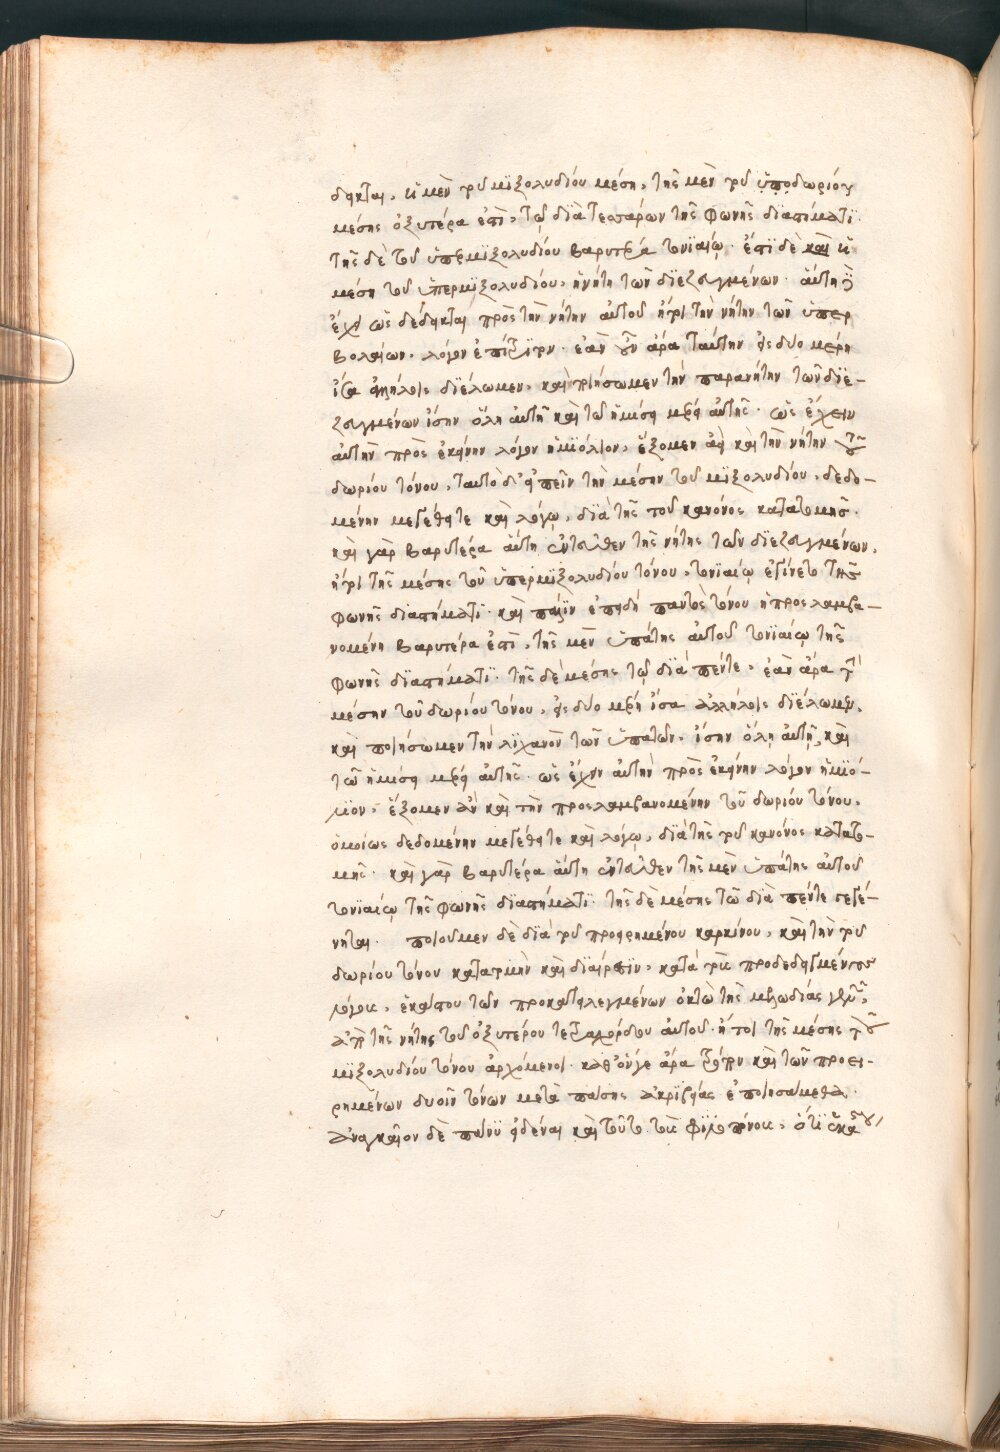 δεικται, ἡ μὲν τοῦ μιξολυδίου μέση, τῆς μὲν τοῦ ὑποδωρίου
μέσης ὀξυτέρα ἐστὶ, τῷ διὰ τεσσάρων τῆς φωνῆς διαστήματι·
τῆς δὲ τοῦ ὑπερμιξολυδίου βαρυτέρα τονιαίῳ· ἐπεὶ δὲ καὶ ἡ
μέση τοῦ ὑπερμιξολυδίου, ἡ νήτη τῶν διεζευγμένων· αὕτη
ἔχει ὡς δέδεικται πρὸς τὴν νήτην αὐτοῦ ἤτοι τὴν νήτην τῶν ὑπερ
βολαίων, λόγον ἐπίτριτον· ἐὰν οὖν ἄρα ταύτην εἰς δύο μέρη
ἴσα ἀλλήλοις διέλωμεν, καὶ ποιήσωμεν τὴν παρανήτην τῶν διε-
ζευγμένων ἴσην ὅλη αὐτῆ καὶ τῶ ἡμίσει μέρει αὐτῆς· ὡς ἔχειν
αὐτὴν πρὸς ἐκείνην λόγον ἡμιόλιον, ἕξομεν ἂν καὶ τὴν νήτην τοῦ
δωρίου τόνου, ταυτὸ δ' εἰπεῖν τὴν μέσην τοῦ μιξολυδίου, δεδο-
μένην μεγέθει τε καὶ λόγῳ, διὰ τῆς τοῦ κανόνος κατατομῆς·
καὶ γὰρ βαρυτέρα αὕτη ἐντεῦθεν τῆς νήτης τῶν διεζευγμένων,
ἤτοι τῆς μέσης τοῦ ὑπερμιξολυδίου τόνου, τονιαίῳ ἐγίνετο τῆς
φωνῆς διαστήματι· καὶ πάλιν ἐπειδὴ παντὸς τόνου ἡ προσλαμβα-
νομένη βαρυτέρα ἐστὶ, τῆς μὲν ὑπάτης αὐτοῦ τονιαίῳ τῆς
φωνῆς διαστήματι· τῆς δὲ μέσης τῷ διὰ πέντε, ἐὰν ἄρα τὴν
μέσην τοῦ δωρίου τόνου, εἰς δύο μέρη ἴσα ἀλλήλοις διέλωμεν,
καὶ ποιήσωμεν τὴν λιχανὸν τῶν ὑπατῶν, ἴσην ὅλη αὐτῆ, καὶ
τῶ ἡμίσει μέρει αὐτῆς· ὡς ἔχειν αὐτὴν πρὸς ἐκείνην λόγον ἡμιό-
λιον, ἕξομεν ἂν καὶ τὴν προσλαμβανομένην τοῦ δωρίου τόνου,
ὁμοίως δεδομένην μεγέθει τε καὶ λόγῳ, διὰ τῆς τοῦ κανόνος κατατο-
μῆς· καὶ γὰρ βαρυτέρα αὕτη ἐντεῦθεν τῆς μὲν ὑπάτης αὐτοῦ
τονιαίῳ τῆς φωνῆς διαστήματι· τῆς δὲ μέσης τῶ διὰ πέντε γεγέ-
νηται· ποιοῦμεν δὲ διὰ τοῦ προειρημένου καρκίνου, καὶ τὴν τοῦ
δωρίου τόνου κατατομὴν καὶ διαίρεσιν, κατὰ τοὺς προδεδειγμένους
λόγους, ἑκάστου τῶν προκατειλεγμένων ὀκτὼ τῆς μελωδίας γενῶν,
ἀπὸ τῆς νήτης τοῦ ὀξυτέρου τετραχόρδου αὐτοῦ· ἤτοι τῆς μέσης τοῦ
μιξολυδίου τόνου ἀρχόμενοι· καθ' ὅνγε ἄρα τρόπον καὶ τῶν προει-
ρημένων δυοῖν τόνων μετὰ πάσης ἀκριβείας ἐποιησάμεθα·
ἀναγκαῖον δὲ πάνυ εἰδέναι καὶ τοῦτο τοὺς φιλοπόνους, ὅτι ἑκάστου